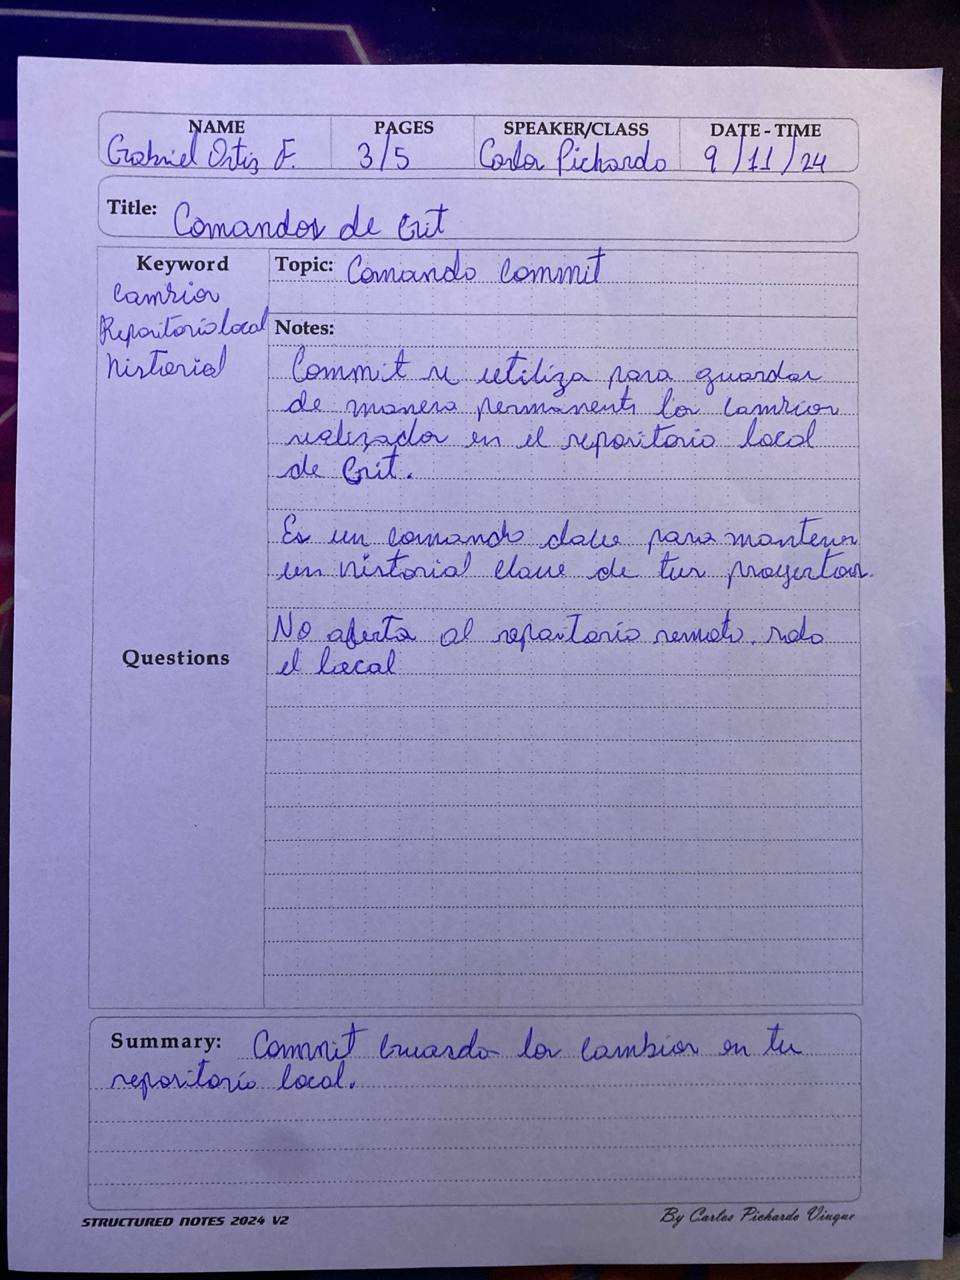 NAME PAGES SPEAKER/CLASS DATE - TIME
Gabriel Ortiz F. 3/5 Carlos Pichardo 9/11/24
Title: Comandos de Git
Keyword
Cambios
Repositorio local
historial
Topic: Comando commit
Notes:
Commit se utiliza para guardar
de manera permanente los cambios
realizados en el repositorio local
de Git.
Es un comando clave para mantener
un historial clave de tus proyectos.
No afecta al repositorio remoto, solo
el local
Questions
Summary: Commit Guarda los cambios en tu
repositorio local.
STRUCTURED NOTES 2024 V2
By Carlos Pichardo Viuque